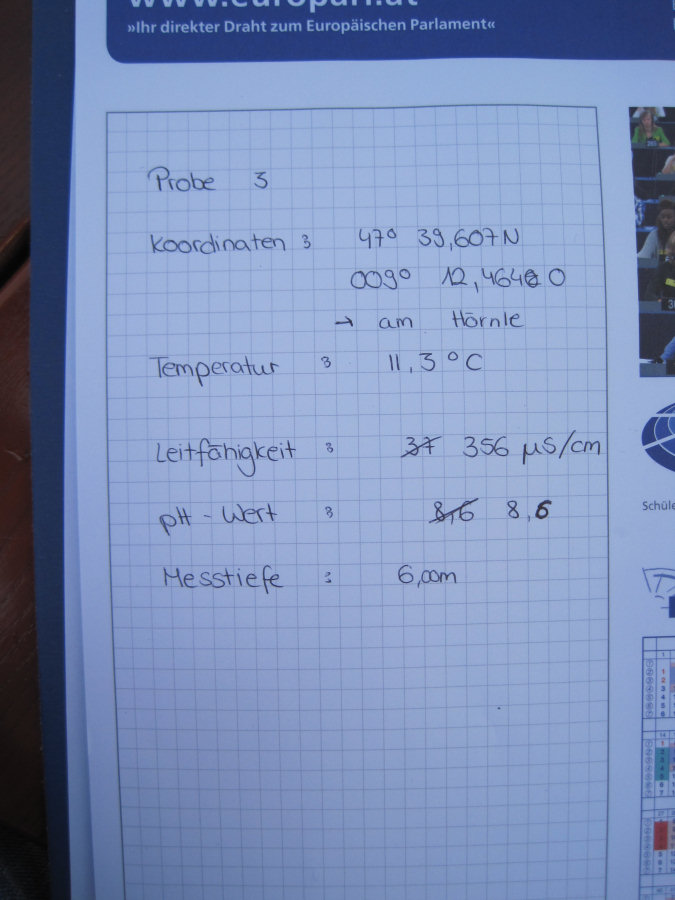 www.europarl.at
»Ihr direkter Draht zum Europäischen Parlament«
Probe 3
Koordinaten : 47° 39,607N
009° 12,464 O
→ am Hörnle
Temperatur : 11,3 °C
Leitfähigkeit : 37 356 µS/cm
pH-Wert : 8,6 8,6
Messtiefe : 6,00m